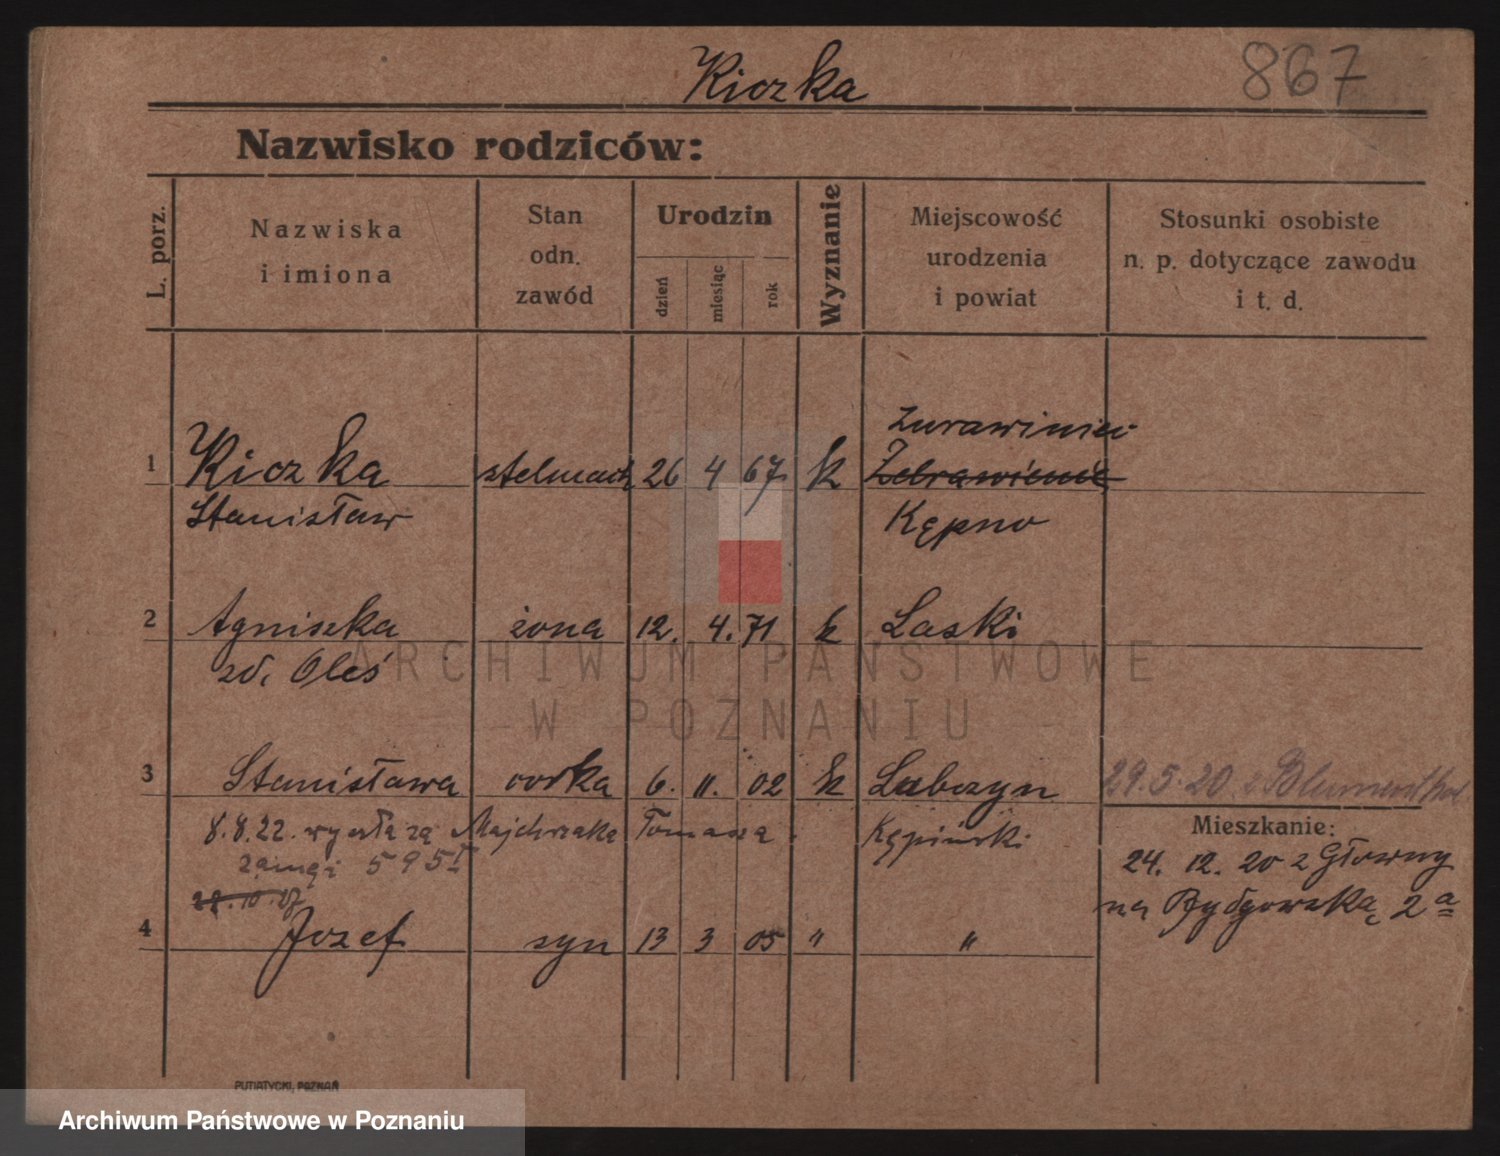 Kiczka
867
Nazwisko rodziców:
L. porz.
Nazwiska
i imiona
Stan
odn.
zawód
Urodzin
dzień
miesiąc
rok
Wyznanie
Miejscowość
urodzenia
i powiat
Stosunki osobiste
n. p. dotyczące zawodu
i t. d.
1 Kiczka stelmach 26 4 67 k
Stanisław Kępno
2 Agniszka żona 12. 4. 71 k Laski
zd. Oleś
3 Stanisława córka 6. 11. 02 k 29.5.20 z Blumenthal
8.8.22. wyszła za Majchrzaka Tomasza. Kępiński
Mieszkanie:
595I
24. 12. 20 z Głowny
na Bydgowską 2a
4 Jozef syn 13 3 05 " "
PUTIATYCKI, POZNAŃ
ARCHIWUM PAŃSTWOWE
W POZNANIU
Archiwum Państwowe w Poznaniu